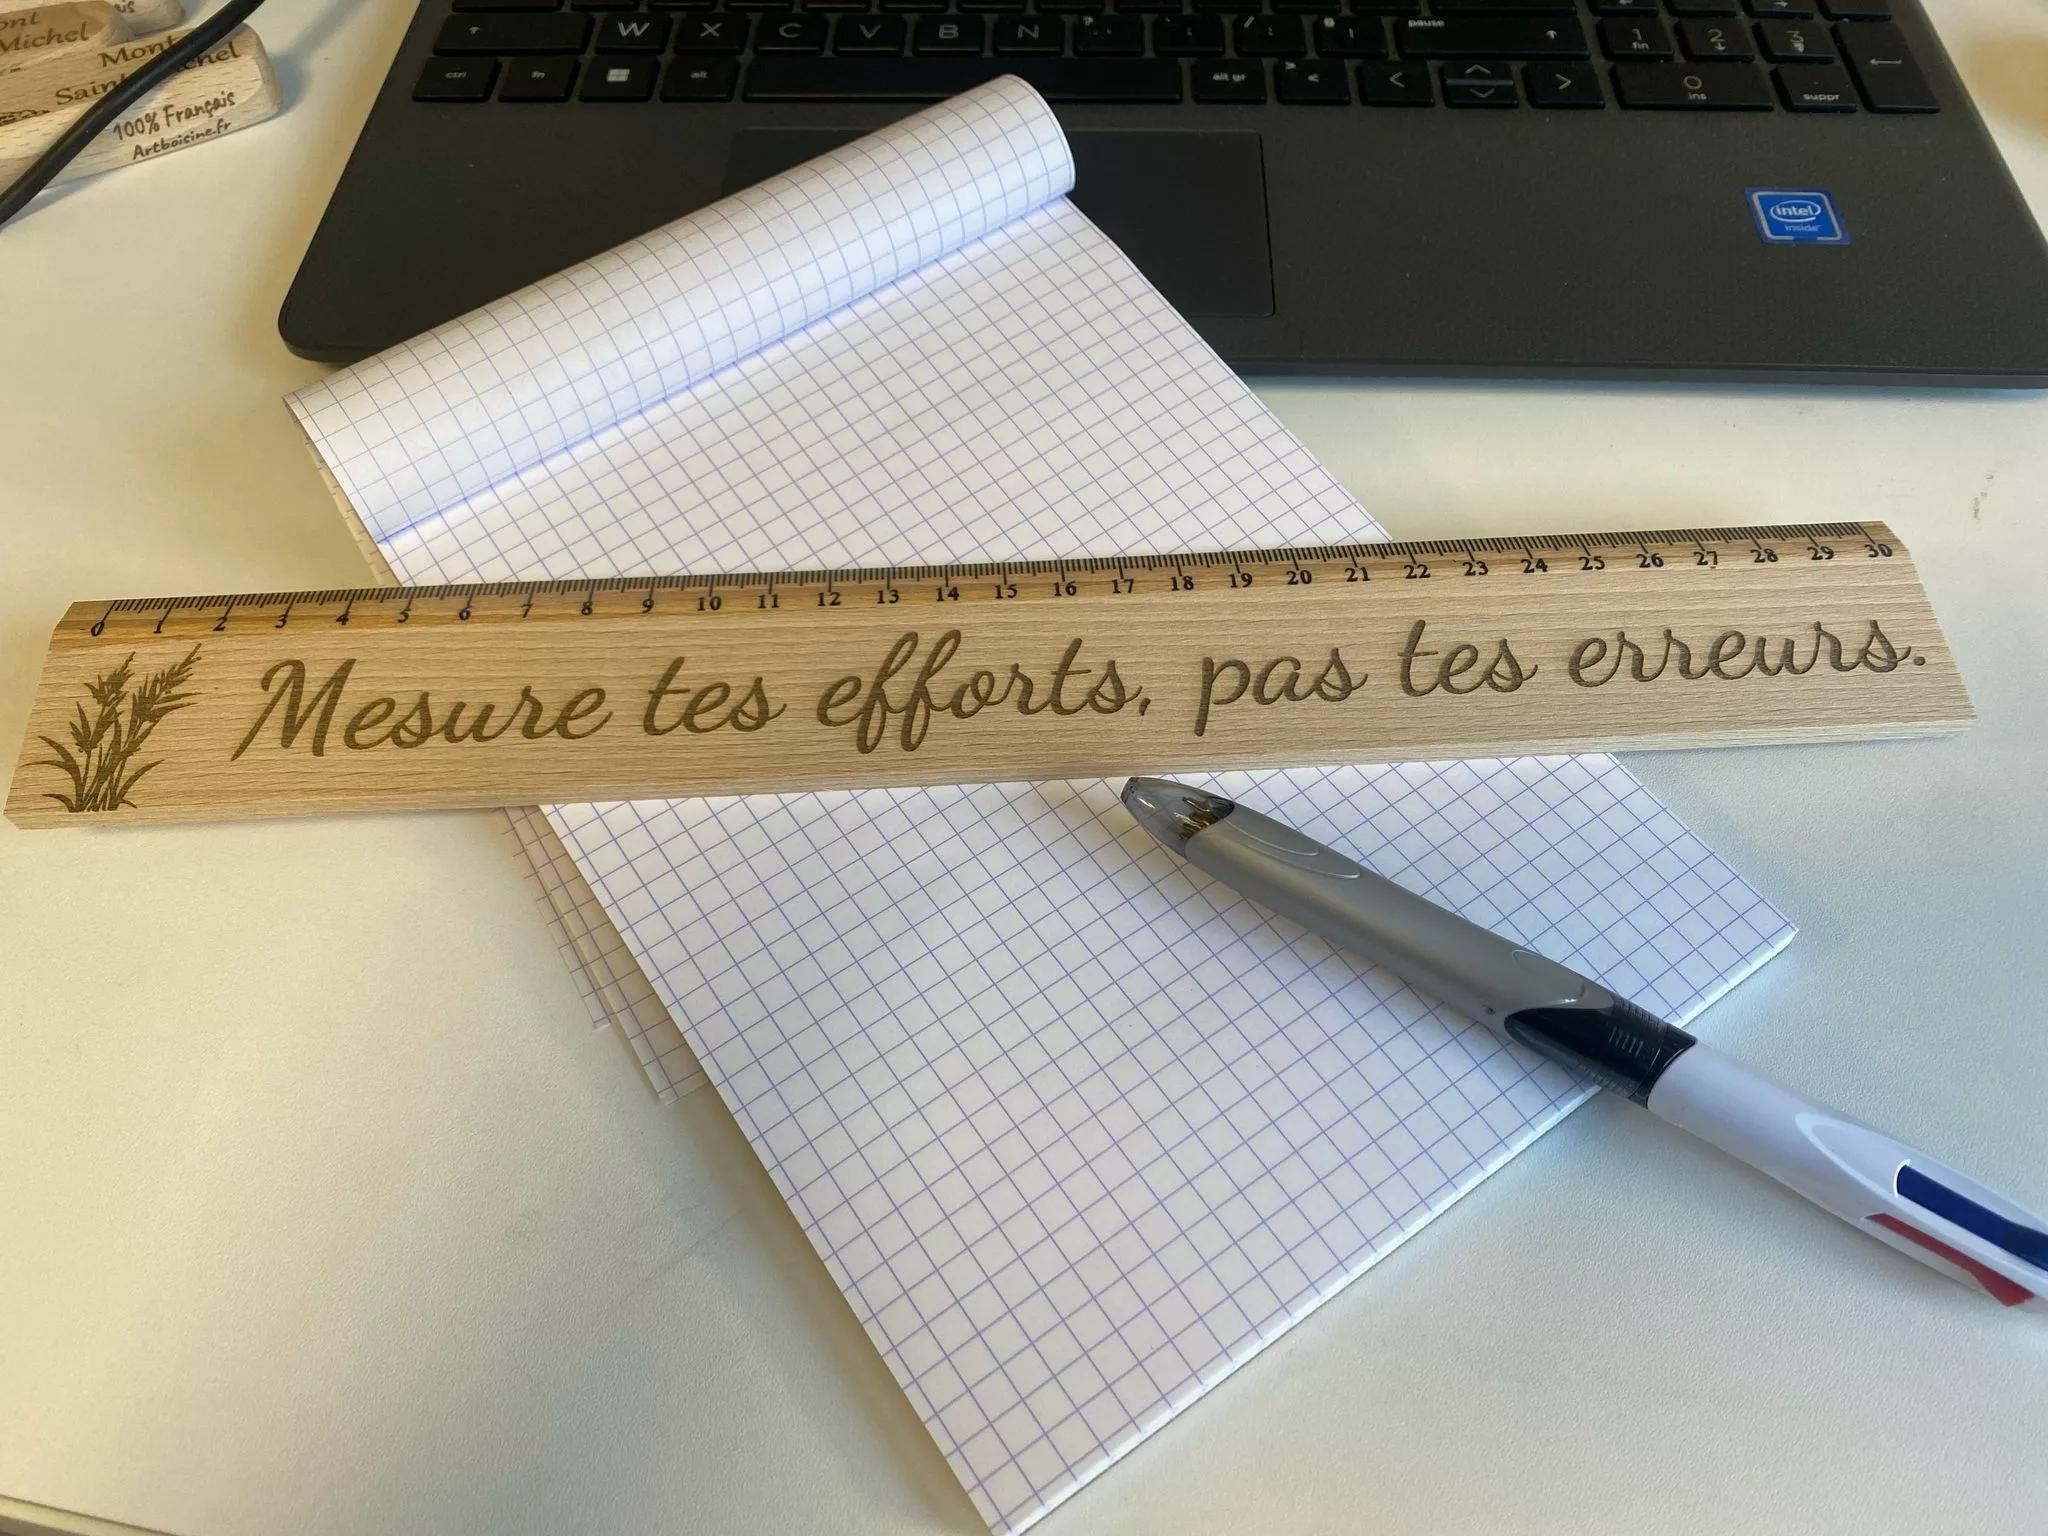 ont
Michel
ais
Mont
Saint Michel
100% Français
Artboisine.fr
W X C V B N ? , . ; / : § ! pause
1 fin 2 3
ctrl fn alt alt gr > < 0 ins . suppr
intel
inside
0 1 2 3 4 5 6 7 8 9 10 11 12 13 14 15 16 17 18 19 20 21 22 23 24 25 26 27 28 29 30
Mesure tes efforts, pas tes erreurs.